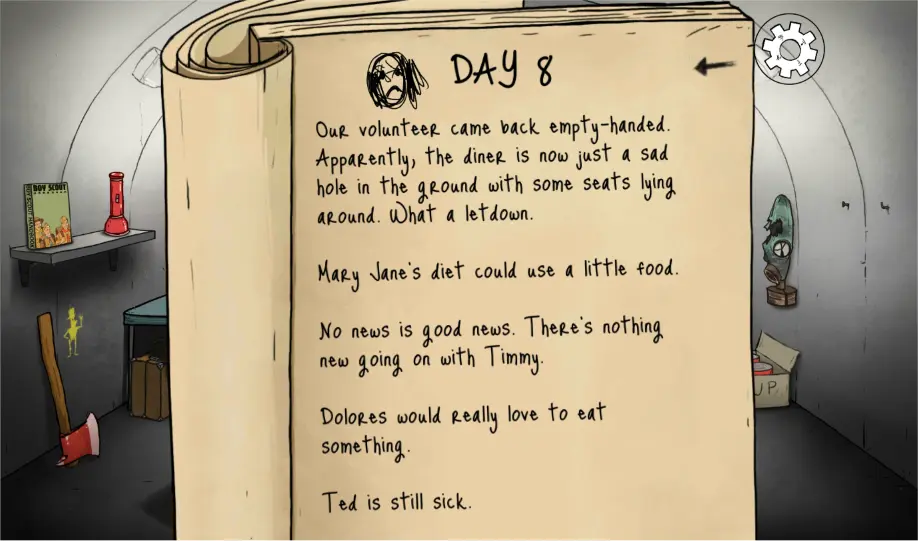 DAY 8
Our volunteer came back empty-handed.
Apparently, the diner is now just a sad
hole in the ground with some seats lying
around. What a letdown.
Mary Jane's diet could use a little food.
No news is good news. There's nothing
new going on with Timmy.
Dolores would really love to eat
something.
Ted is still sick.
BOY SCOUT
UP